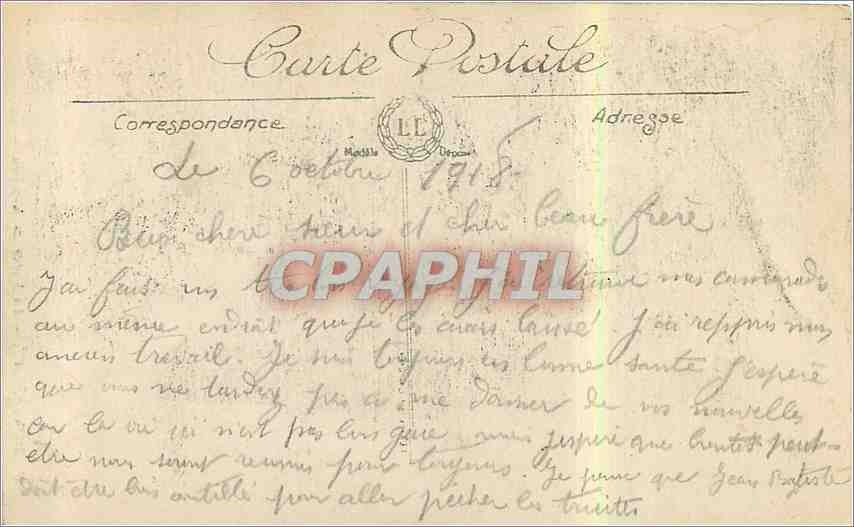 Carte Postale
Correspondance
Adresse
LL
Modèle Déposé
Le 6 octobre 1918
Bien chère sœur et cher beau frère
CPAPHIL
J'ai fait un mes camarades
au même endroit que je les avais laissé. J'ai reppris mon
ancien travail. Je suis toujours en bonne santé j'espère
que vous ne tardez pas a me donner de vos nouvelles
car la vie ici n'est pas gaie mais j'espère que bientôt peut-
etre nous seront reunis pour toujours. Je pense que Jean Baptiste
doit être bien outillé pour aller pecher les truites